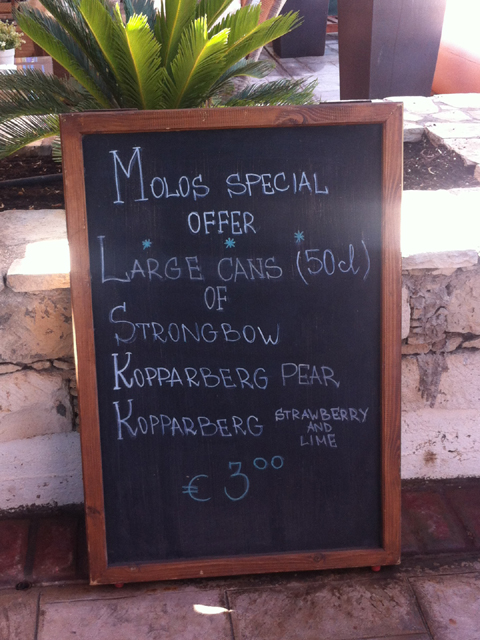 MOLOS SPECIAL
OFFER
LARGE CANS (50cl)
OF
STRONGBOW
KOPPARBERG PEAR
KOPPARBERG STRAWBERRY
AND
LIME
€ 3⁰⁰